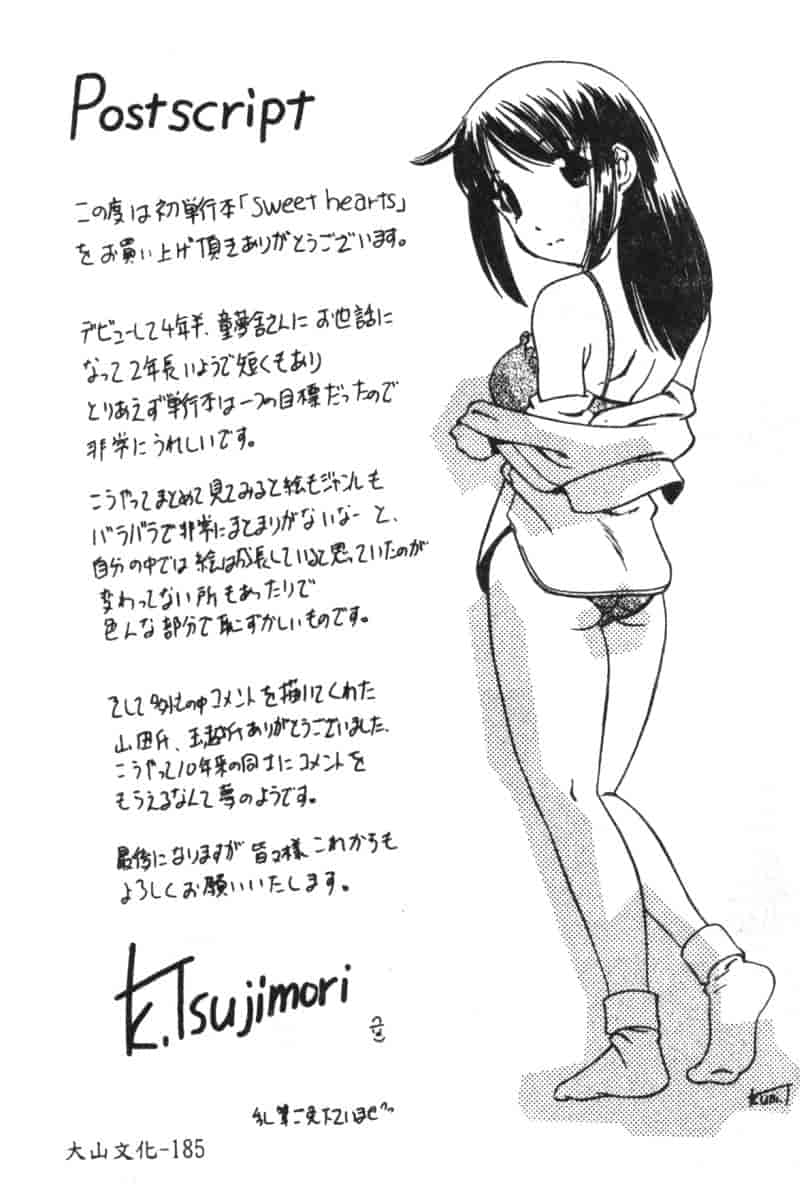 Postscript
この度は初単行本「Sweet hearts」
をお買い上げ頂きありがとうございます。
デビューして4年半、童夢舎さんにお世話に
なって2年長いようで短くもあり
とりあえず単行本は一つの目標だったので
非常にうれしいです。
こうやってまとめて見てみると絵もジャンルも
バラバラで非常にまとまりがないなーと、
自分の中では絵は成長していると思っていたのが
変わってない所もあったりで
色んな部分で恥ずかしいものです。
そして多忙の中コメントを描いてくれた
山田氏、玉越氏ありがとうございました。
こうやって10年来の同士にコメントを
もらえるなんて夢のようです。
最後になりますが皆々様これからも
よろしくお願いいたします。
K.Tsujimori
乱筆ご免下さいませ
大山文化-185